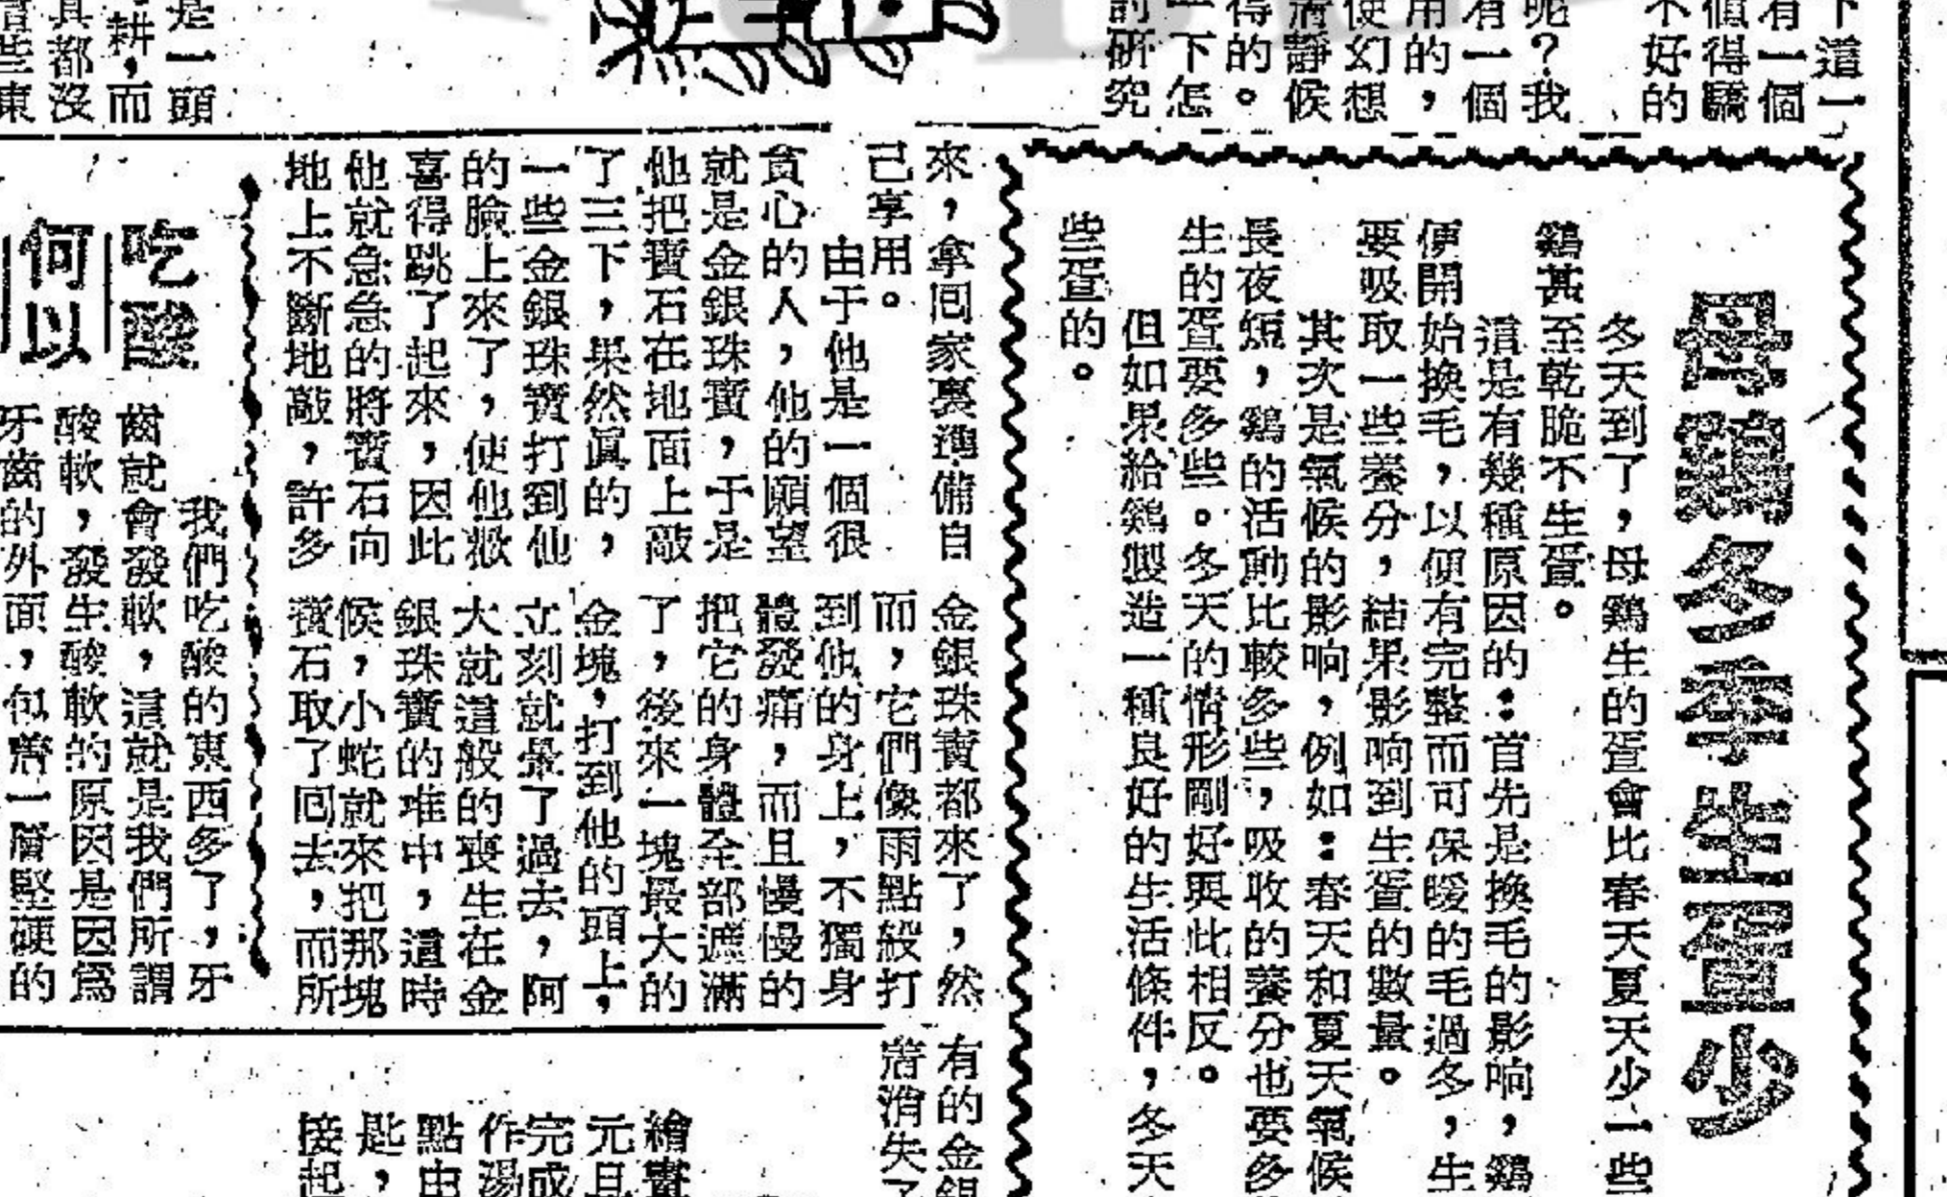 下這一
有一個
值得驕
不好的
呢？我
有一個
用的，
使幻想
靜候
得的。
下怎
討研究
是一頭
耕，而
具都沒
些東
母鷄冬季生蛋少
冬天到了，母鷄生的蛋會比春天夏天少一些
鷄甚至乾脆不生蛋。
這是有幾種原因的：首先是換毛的影响，鷄
便開始換毛，以便有完整而可保暖的毛過冬，生
要吸取一些養分，結果影响到生蛋的數量。
其次是氣候的影响，例如：春天和夏天氣候
長夜短，鷄的活動比較多些，吸收的養分也要多
生的蛋要多些。冬天的情形剛好與此相反。
但如果給鷄製造一種良好的生活條件，冬天
些蛋的。
來，拿囘家裏準備自
己享用。
由于他是一個很
貪心的人，他的願望
就是金銀珠寶，于是
他把寶石在地面上敲
了三下，果然眞的，
一些金銀珠寶打到他
的臉上來了，使他歡
喜得跳了起來，因此
他就急急的將寶石向
地上不斷地敲，許多
金銀珠寶都來了，然
而，它們像雨點般打
到他的身上，不獨身
體發痛，而且慢慢的
把它的身體全部遮滿
了，後來一塊最大的
金塊，打到他的頭上，
立刻就暈了過去，阿
大就這般的喪生在金
銀珠寶的堆中，這時
候，小蛇就來把那塊
寶石取了囘去，而所
有的金銀
消失了
吃酸
何以
我們吃酸的東西多了，牙
齒就會發軟，這就是我們所謂
酸軟，發生酸軟的原因是因爲
牙齒的外面，包着一層堅硬的
繪畫
元旦
完成
作湯
點由
匙，
接起